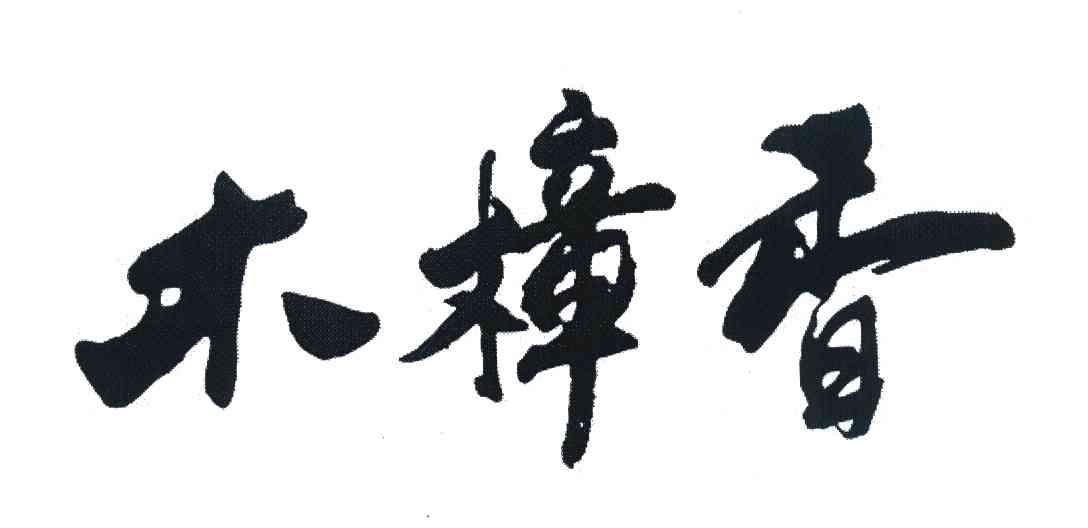 木樟香